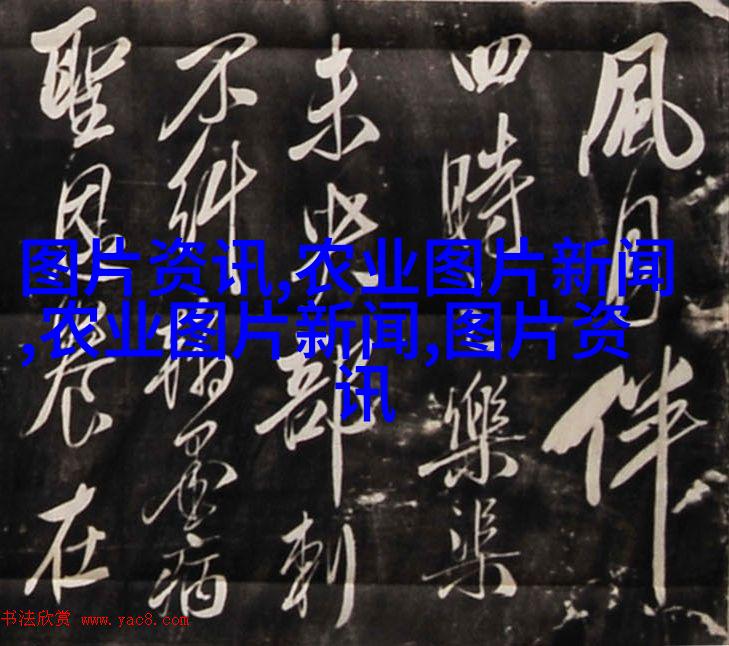 風月伴
四時樂渠
未部刺
不病
聖恩在
图片资讯,农业图片新闻
,农业图片新闻,图片资
讯
书法欣赏 www.yac8.com